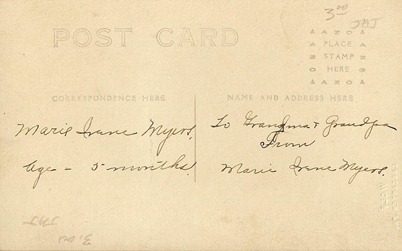 3rd
JAJ
POST CARD
AZO
PLACE
STAMP
HERE
AZO
CORRESPONDENCE HERE
NAME AND ADDRESS HERE
Marie Irene Myers,
Age - 5 months.
To Grandma & Grandpa
From
Marie Irene Myers.